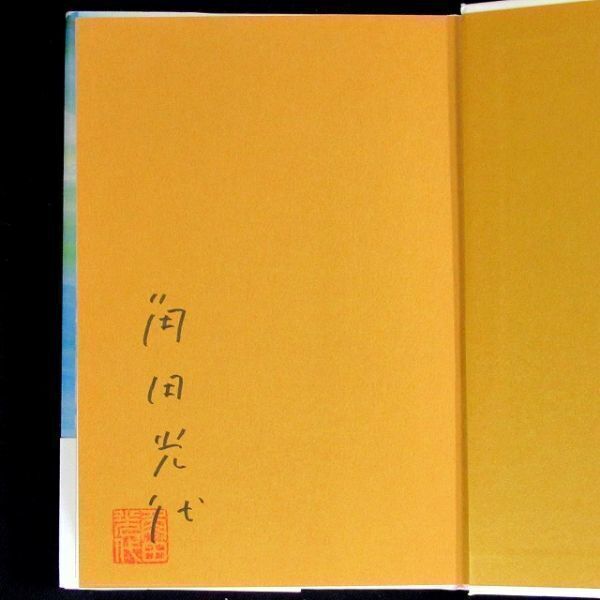 角田光代